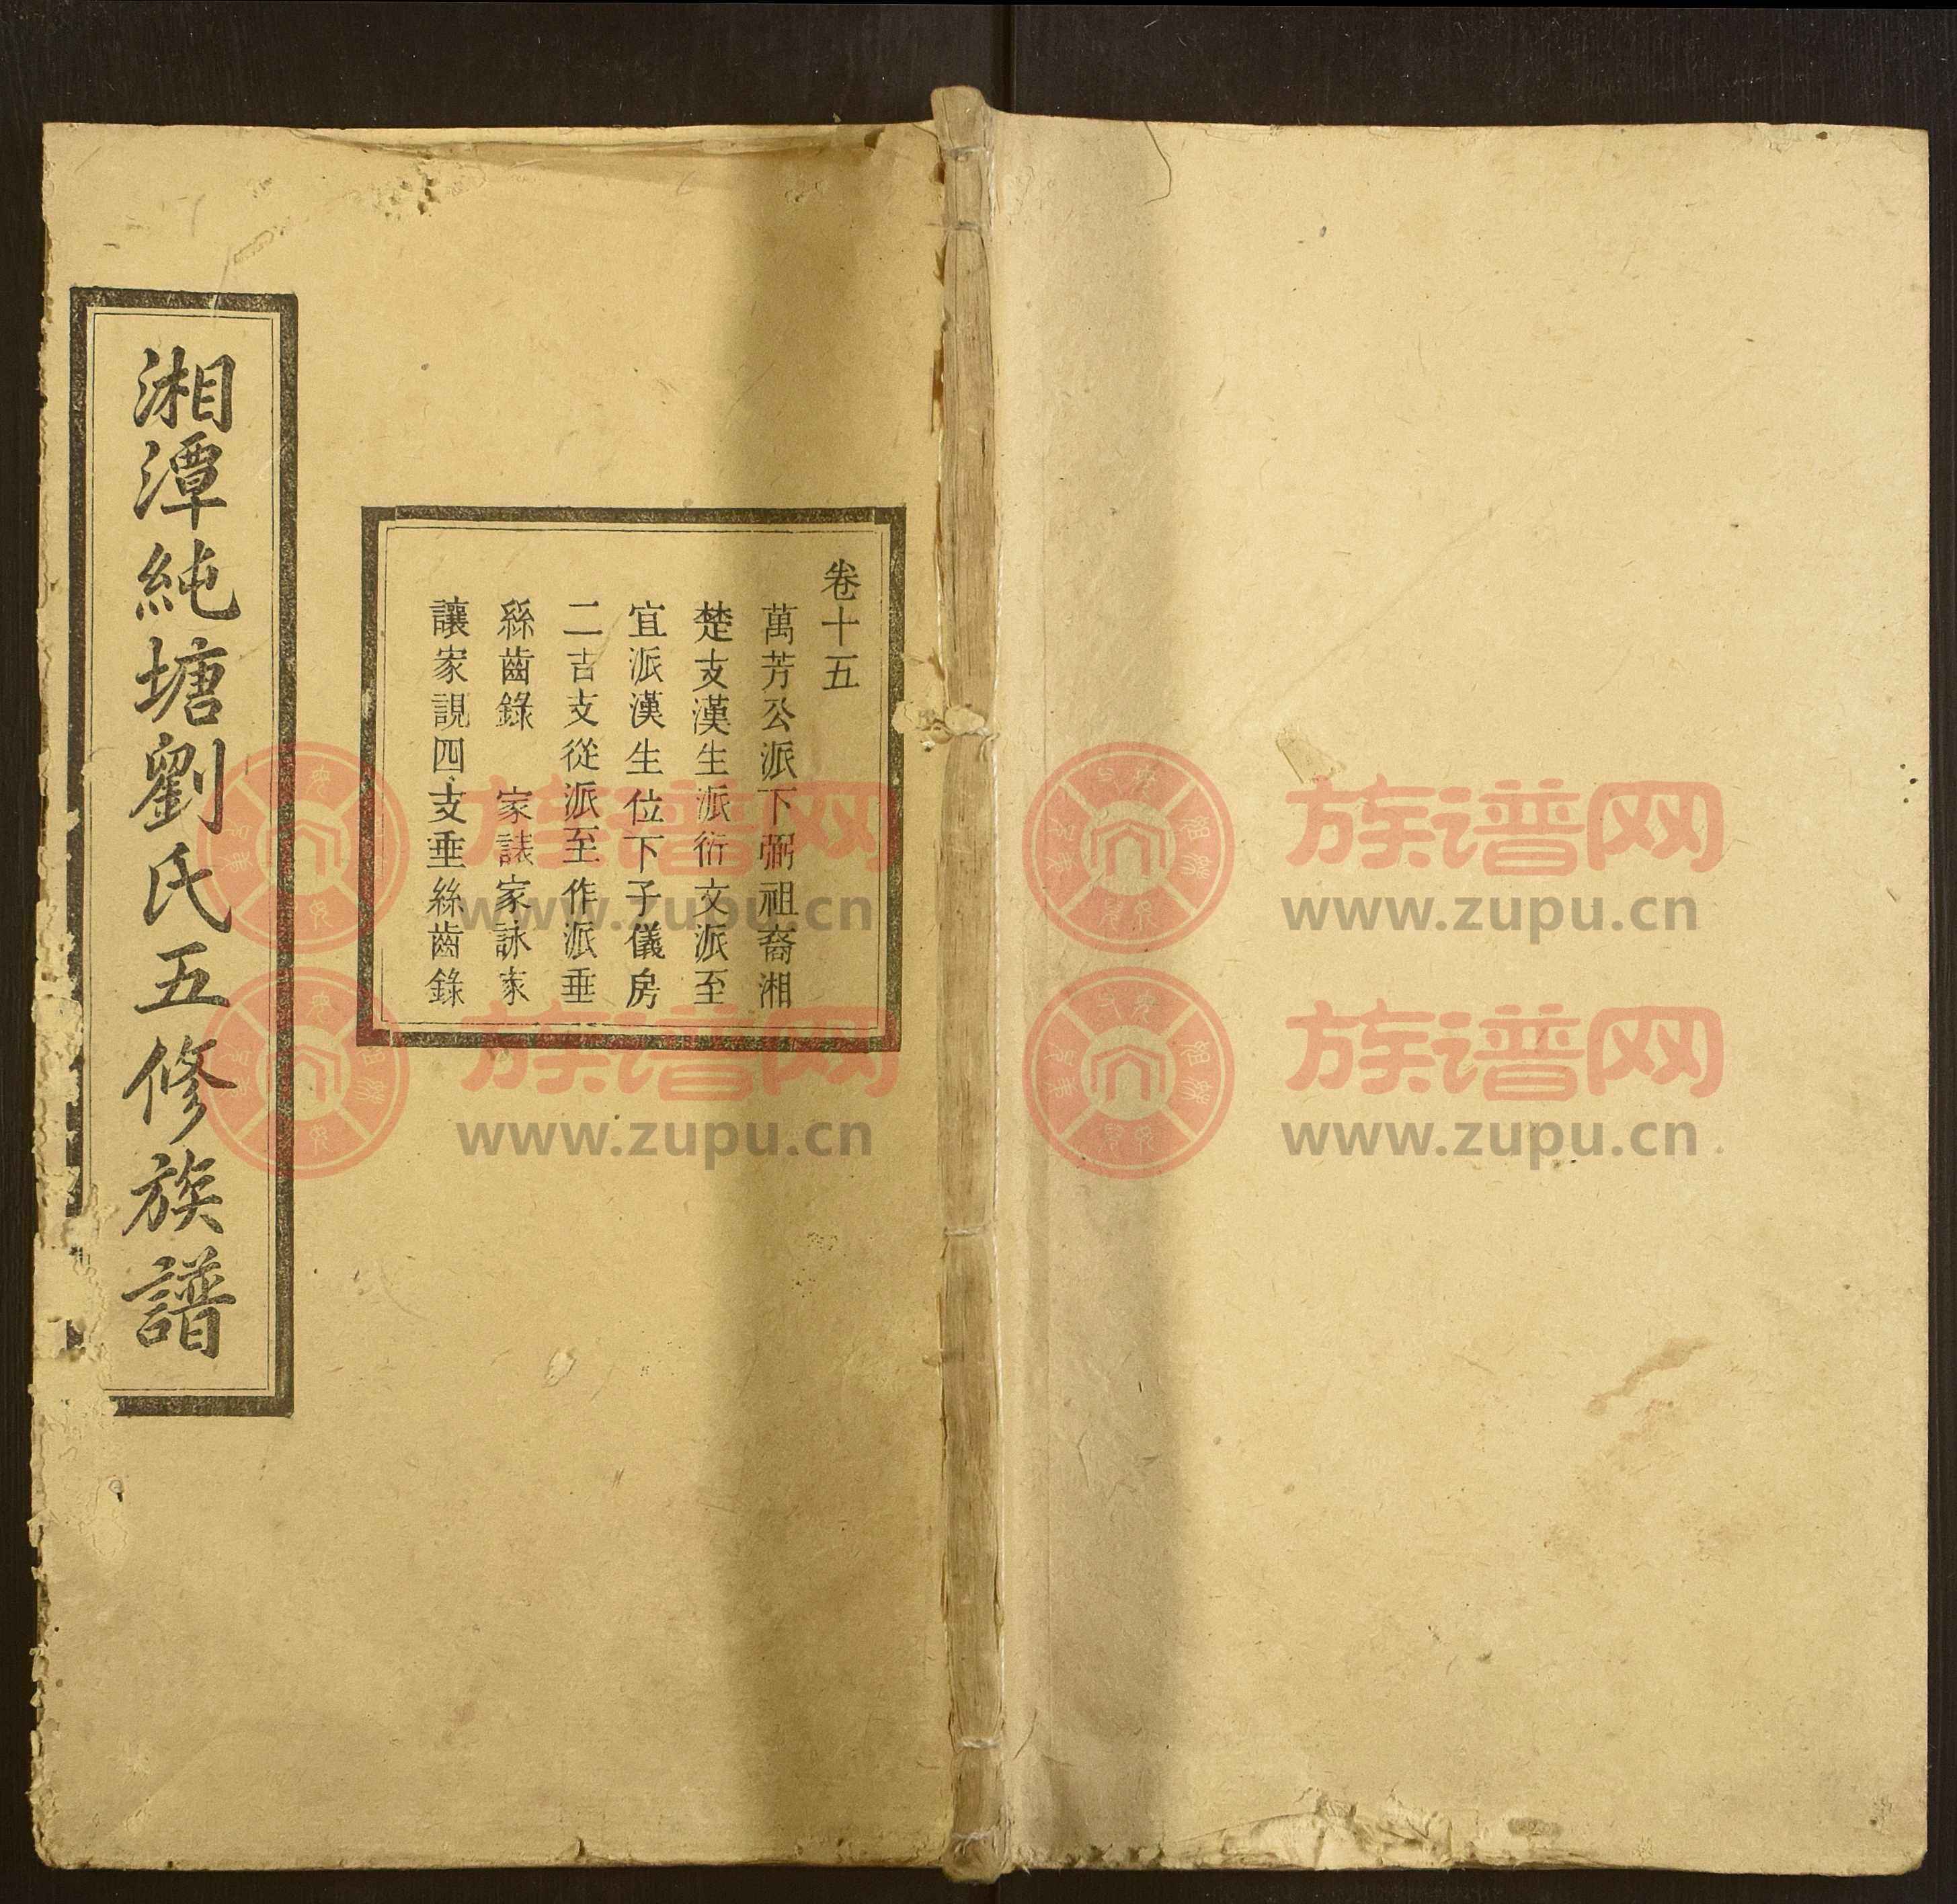 卷十五
萬芳公派下弼祖裔湘
楚支漢生派衍文派至
宜派漢生位下子儀房
二吉支從派至作派垂
絲齒錄 家誌家詠家
讓家誢四支垂絲齒錄
湘潭純塘劉氏五修族譜
族谱网
www.zupu.cn
族谱网
www.zupu.cn
族谱网
www.zupu.cn
族谱网
www.zupu.cn